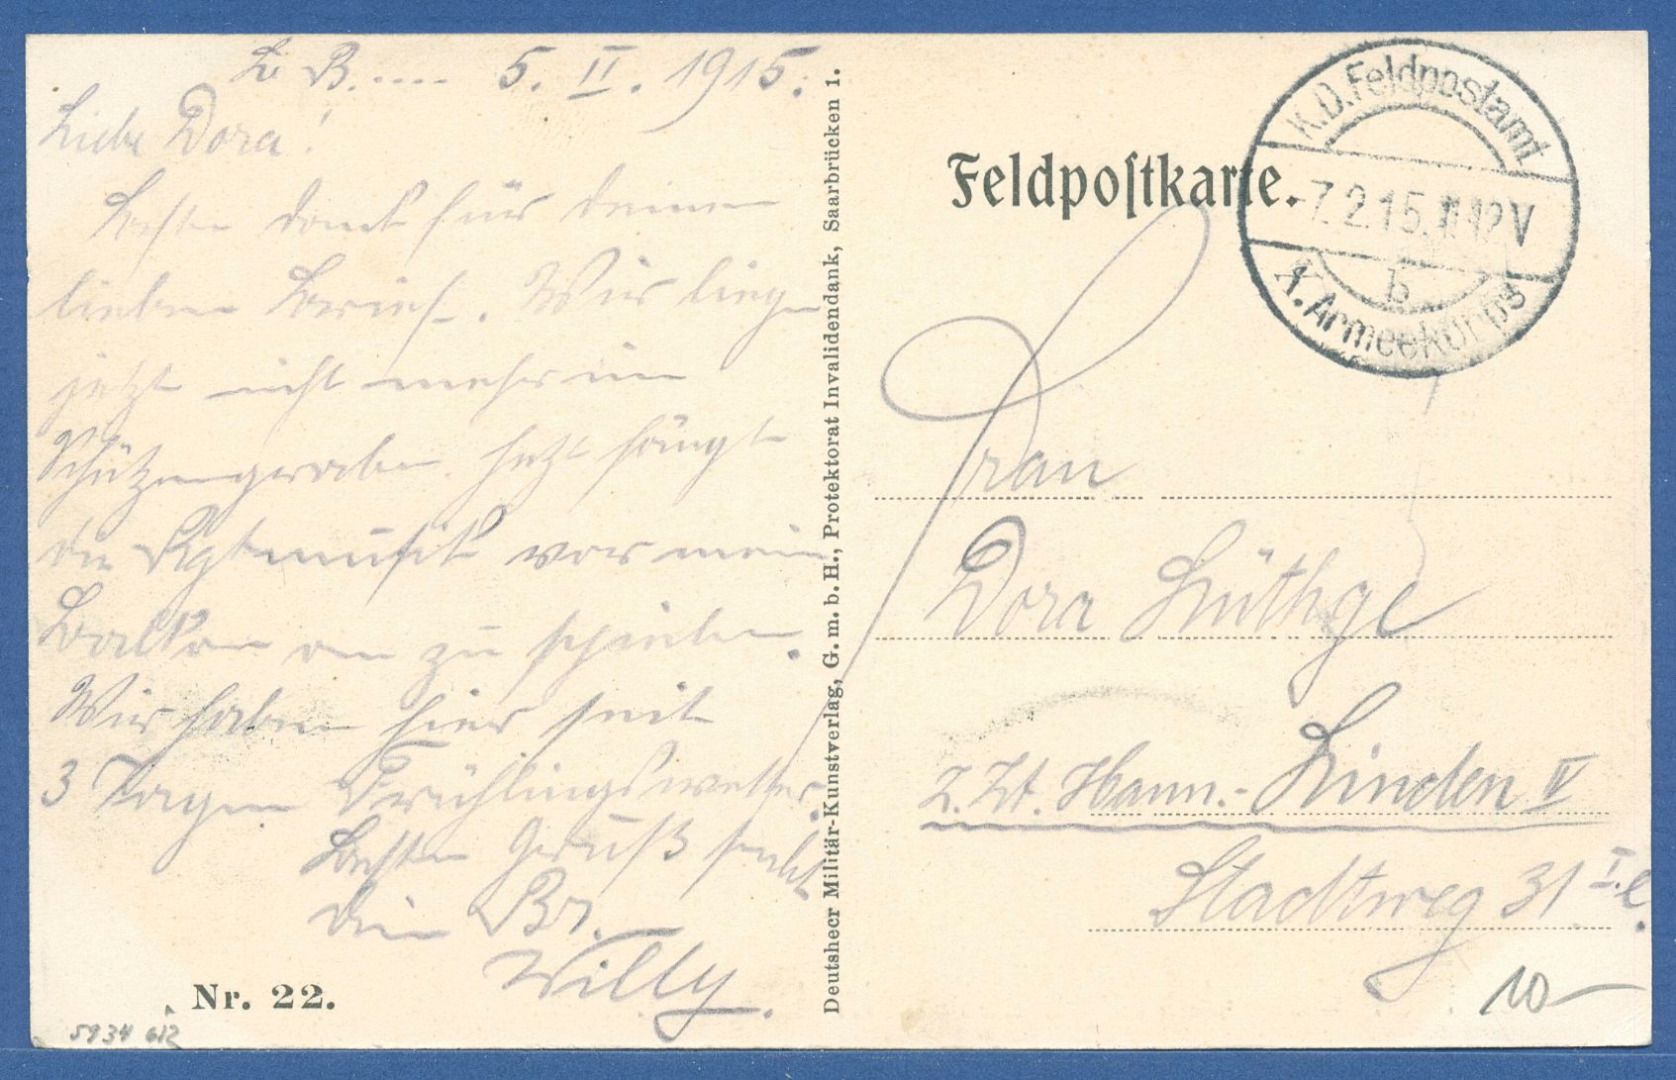 Le B..... 5. II. 1915.
Liebe Dora!
Besten Dank für Deinen
lieben Brief. Wir liegen
jetzt nicht mehr im
Schützengraben. Jetzt fängt
die Rgtmusik vor mein
Balkon an zu spielen.
Wir haben hier seit
3 Tagen Frühlingswetter.
Besten Gruß sendet
Dein Br.
Willy.
Nr. 22.
5934 612
Deutshecr Militär-Kunstverlag, G. m. b. H., Protektorat Invalidendank, Saarbrücken 1.
Feldpoſtkarte.
K.D.Feldpostamt
-7.2.15. 11-12V
b
X. Armeekorps
Frau
Dora Lüthge
z. Zt. Hann.- Linden V
Stadtweg 31 I. l.
10-